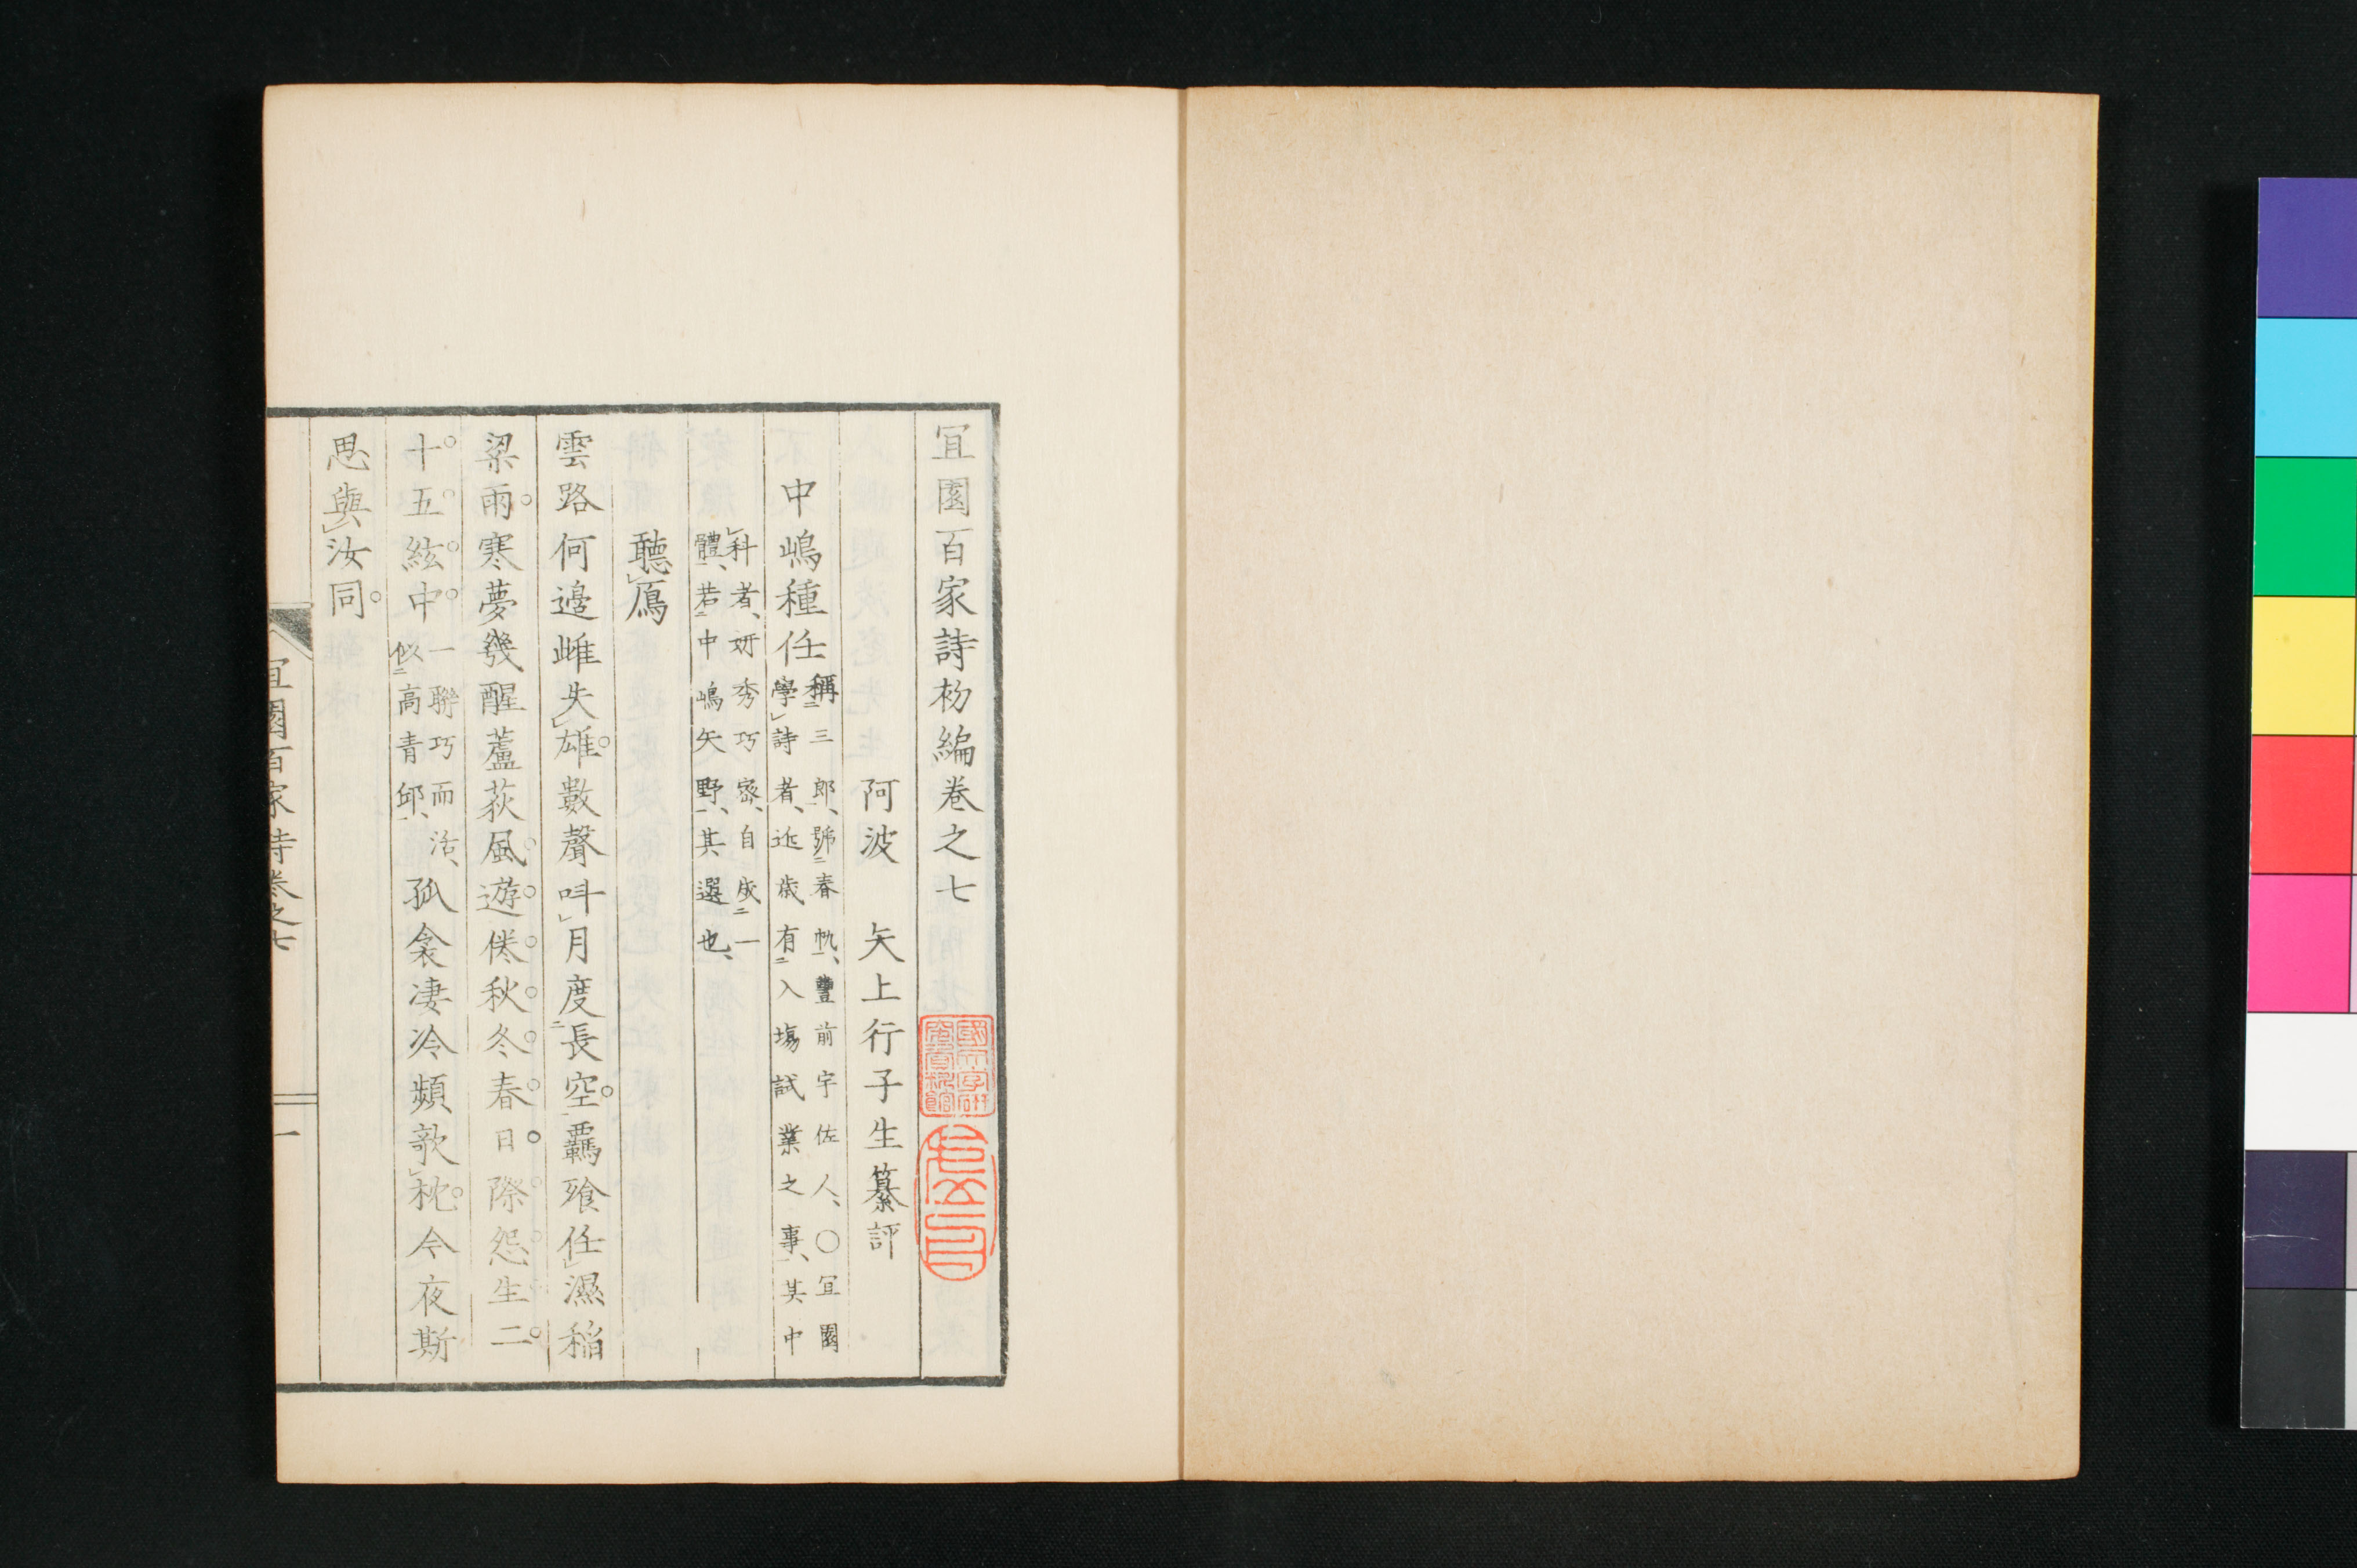 宜園百家詩初編卷之七
阿波　矢上行子生纂評
中嶋種任
稱三郎、號春帆、豐前宇佐人、○宜園
學詩者、近歲有入塲試業之事、其中
科者、妍秀巧密、自成一
體、若中嶋矢野、其選也、
聽鴈
雲路何邊雌失雄數聲呌月度長空羈飱任濕稲
粱雨寒夢幾醒蘆荻風遊倦秋冬春日際怨生二
十五絃中
一聯巧而活、
似高青邱、
孤衾凄冷頻欹枕今夜斯
思與汝同
宜園百家詩卷之七
一